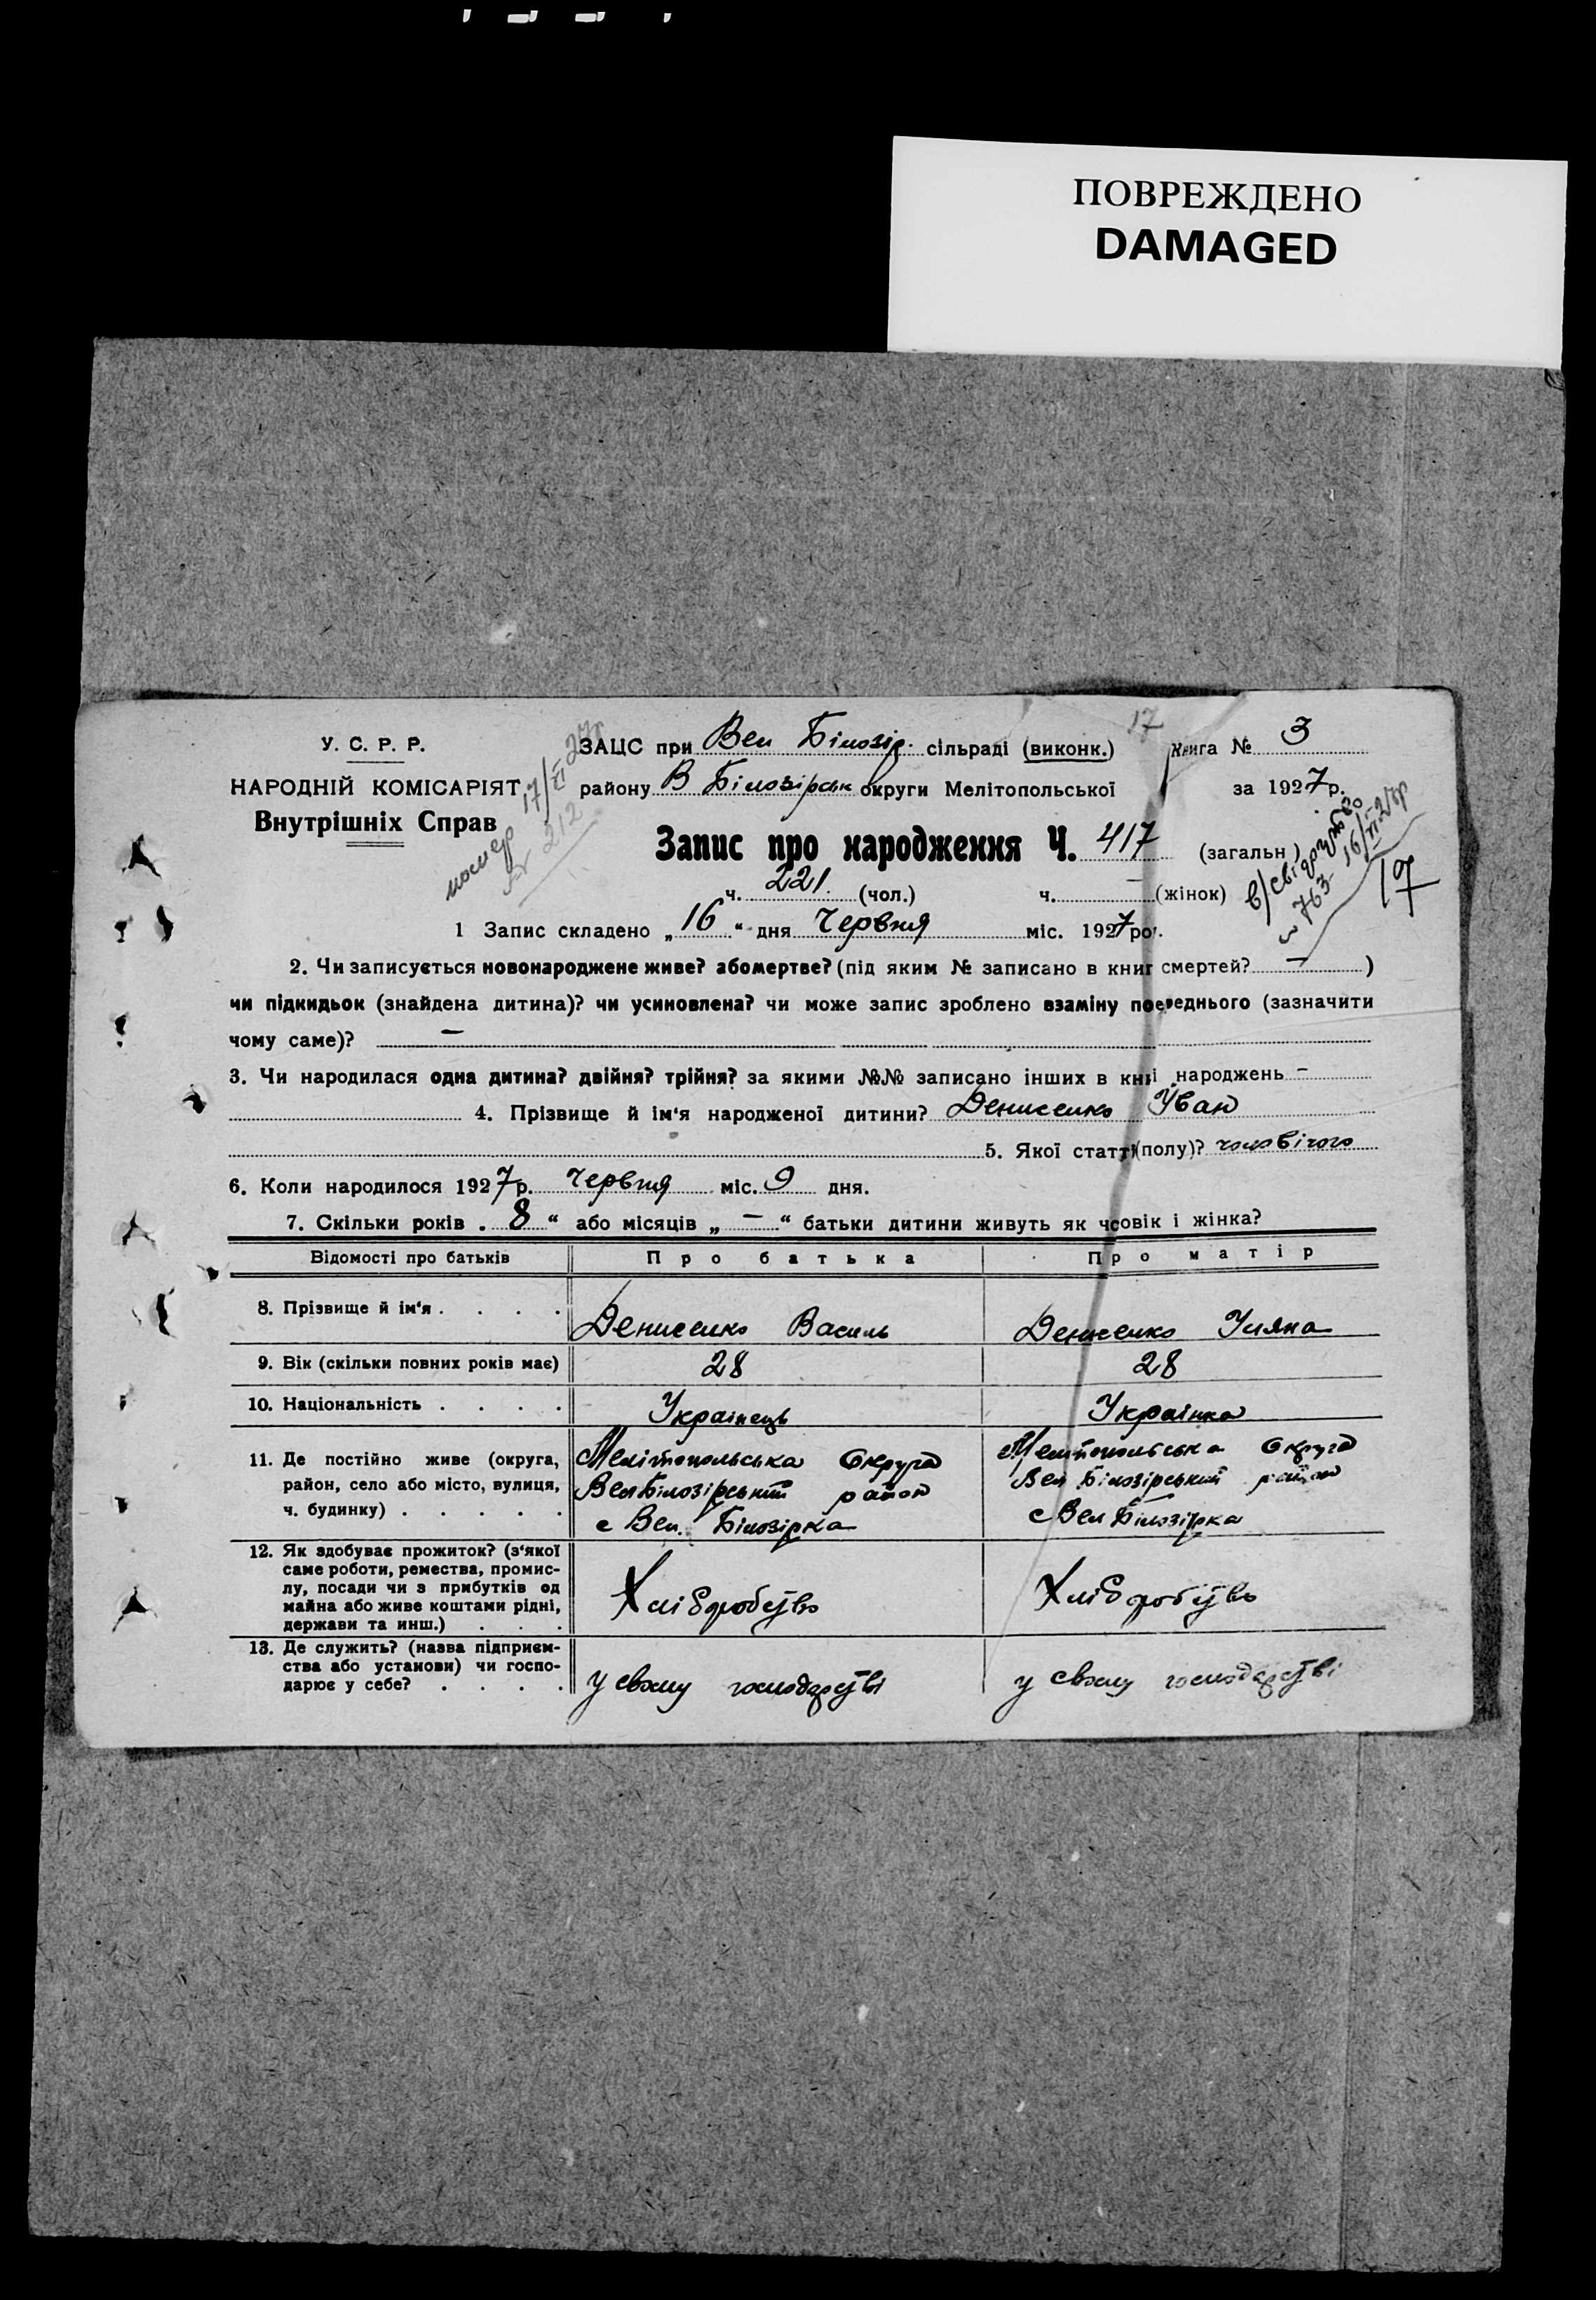 ПОВРЕЖДЕНО
DAMAGED
У. С. Р. Р.
НАРОДНІЙ КОМІСАРІЯТ
Внутрішніх Справ
помер 17/VI 27р
№ 212
17
ЗАЦС при Вел Білозір. сільраді (виконк.)
Книга № 3
району В Білозірськ округи Мелітопольської
за 1927р.
Запис про народження Ч. 417 (загальн)
в/свідоцтво
763 16/VI 27р
17
ч. 221. (чол.) ч. — (жінок)
1 Запис складено „16“ дня Червня міс. 1927 рок.
2. Чи записується новонароджене живе? або мертве? (під яким № записано в книг смертей? — )
чи підкидьок (знайдена дитина)? чи усиновлена? чи може запис зроблено взаміну попереднього (зазначити
чому саме)? —
3. Чи народилася одна дитина? двійня? трійня? за якими №№ записано інших в книі народжень —
4. Прізвище й ім‘я народженої дитини? Денисенко Іван
5. Якої статті (полу)? чоловічого
6. Коли народилося 1927р. Червня міс. 9 дня.
7. Скільки років „ 8 “ або місяців „ — “ батьки дитини живуть як чоовік і жінка?
Відомості про батьків Про батька Про матір
8. Прізвище й ім‘я . . . . Денисенко Василь Денисенко Уляна
9. Вік (скільки повних років має) 28 28
10. Національність . . . . Українець Українка
11. Де постійно живе (округа, район, село або місто, вулиця, ч. будинку) . . . . .
Мелітопольська Округа
Вел Білозірський район
с Вел. Білозірка
Мелітопольська Округа
Вел Білозірський район
с Вел Білозірка
12. Як здобуває прожиток? (з‘якої
саме роботи, ремества, промис-
лу, посади чи з прибутків од
майна або живе коштами рідні,
держави та инш.) . . .
Хліборобство Хліборобство
13. Де служить? (назва підприєм-
ства або установи) чи госпо-
дарює у себе? . . . .
у свому господарстві у свому господарстві